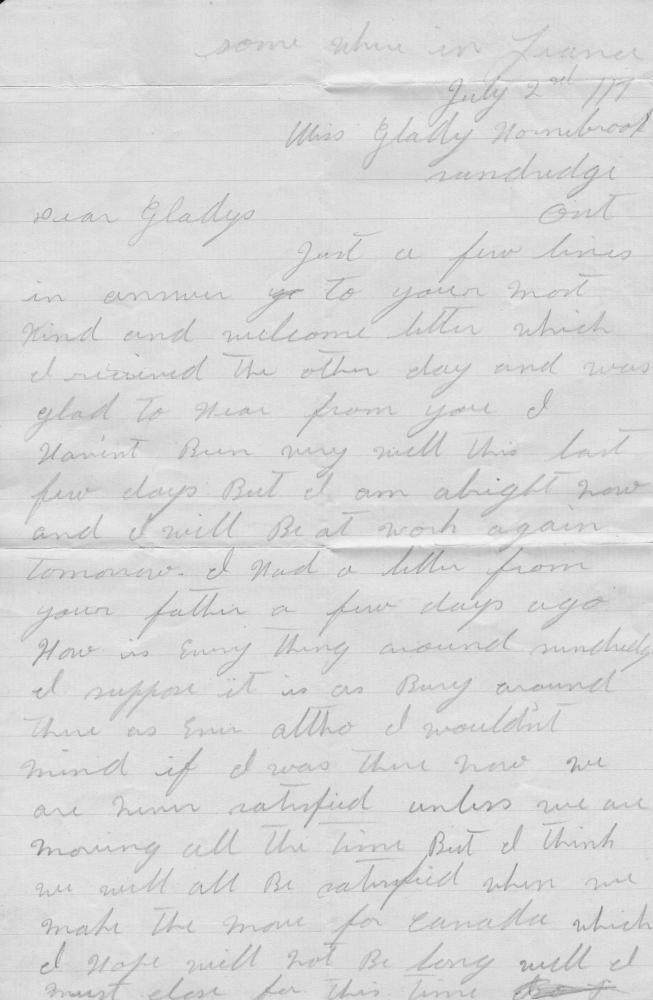 some where in France
July 2nd /17
Miss Glady Hornibrook
sundridge
Ont
Dear Gladys
Just a few lines
in answer to your most
Kind and welcome letter which
I recieved the other day and was
glad to Hear from you I
Haven't Been very well this last
few days But I am alright now
and I will Be at work again
tomorrow. I Had a letter from
your father a few days ago
How is Every thing around sundridg
I suppose it is as Busy around
there as Ever altho I wouldn't
mind if I was there now we
are never satisfied unless we are
moving all the time But I think
we will all Be satisfied when we
make the move for Canada which
I Hope will not Be long well I
must close for this time